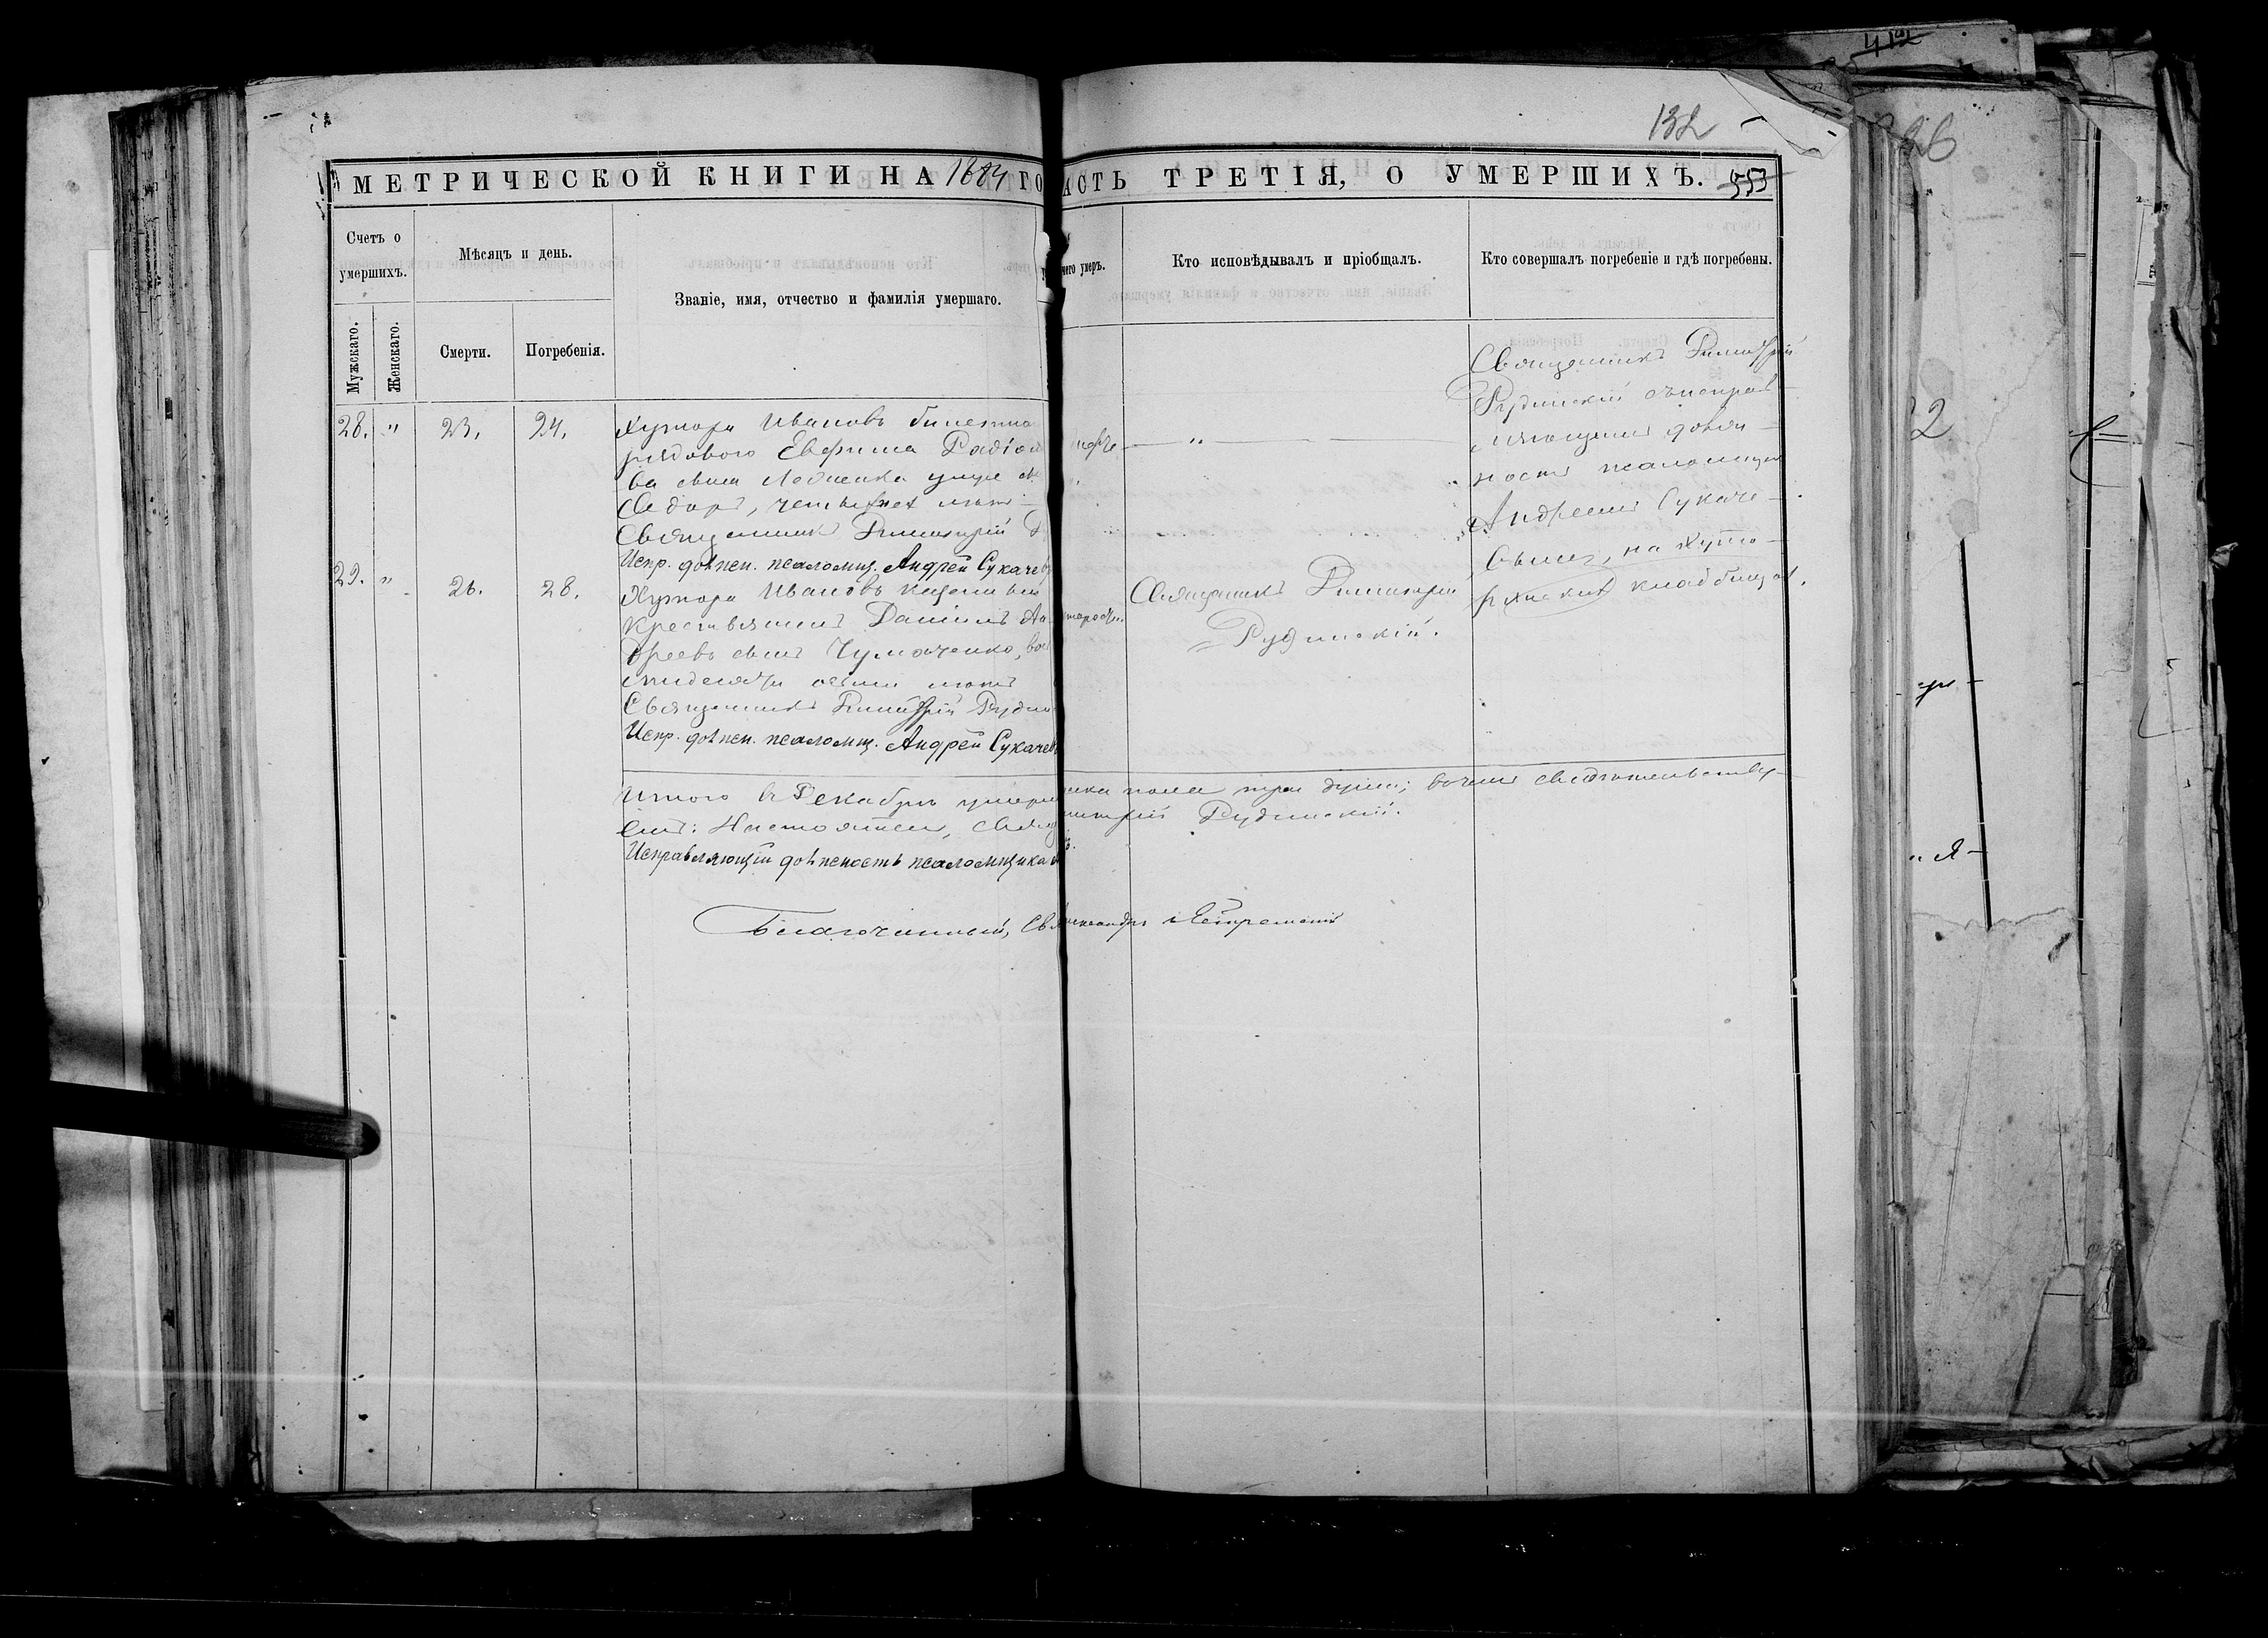 132
МЕТРИЧЕСКОЙ КНИГИ НА 1884 ГО
АСТЬ ТРЕТІЯ, О УМЕРШИХЪ. 553
Счетъ о умершихъ.
Мужскаго.
Женскаго.
Мѣсяцъ и день.
Смерти.
Погребенія.
Званіе, имя, отчество и фамилія умершаго.
чего умеръ.
Кто исповѣдывалъ и пріобщалъ.
Кто совершалъ погребеніе и гдѣ погребены.
28. " 23. 24.
Хутора Ивановъ билетна
рядового Ефима Радіон
ва сына
четырехъ лѣтъ
Священникъ Димитрій Р
Испр. должн. псаломщ. Андрей Сукачев
"
Священникъ Димитрій
Рудинскій съ исправ
ляющимъ долж
ность псаломщик
Андреемъ Сукаче
вымъ, на хуто
рскихъ кладбищах.
29. " 26. 28.
Хутора Ивановъ казенный
крестьянинъ Даніилъ Ан
дреевъ сынъ Чумаченко, вос
мидесяти осьми лѣтъ
Священникъ Димитрій Рудин
Испр. должн. псаломщ. Андрей Сукачев
старости.
Священникъ Димитрій
Рудинскій.
Итого въ Декабрѣ умерш
ска пола три души; въ чемъ свидѣтельству
емъ: Настоятель, Свящ
митрій Рудинскій.
Исправляющій должность псаломщика
Благочинный, Св
лександръ
412
26